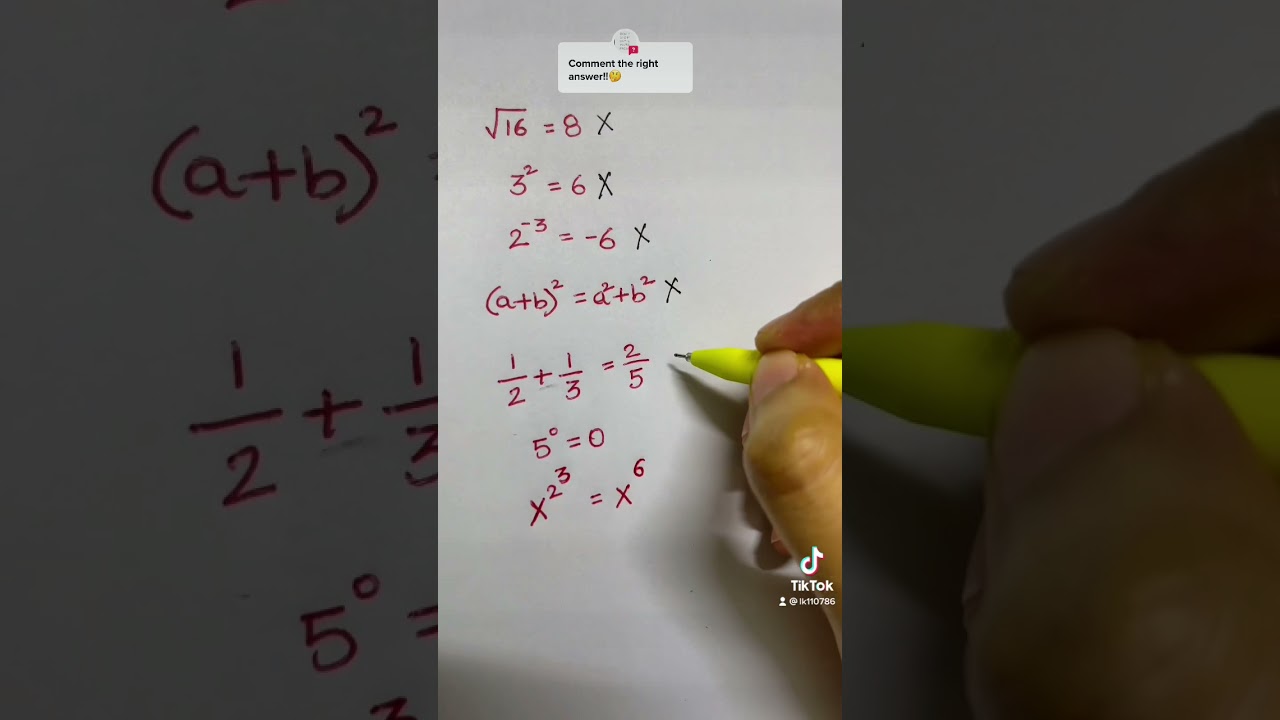 Comment the right
answer!!🤔
√16 = 8 X
3² = 6 X
2⁻³ = -6 X
(a+b)² = a²+b² X
1/2 + 1/3 = 2/5
5⁰ = 0
x^2^3 = x⁶
TikTok
@lk110786
(a+b)²
1/2 + 1/3
5⁰ =
3